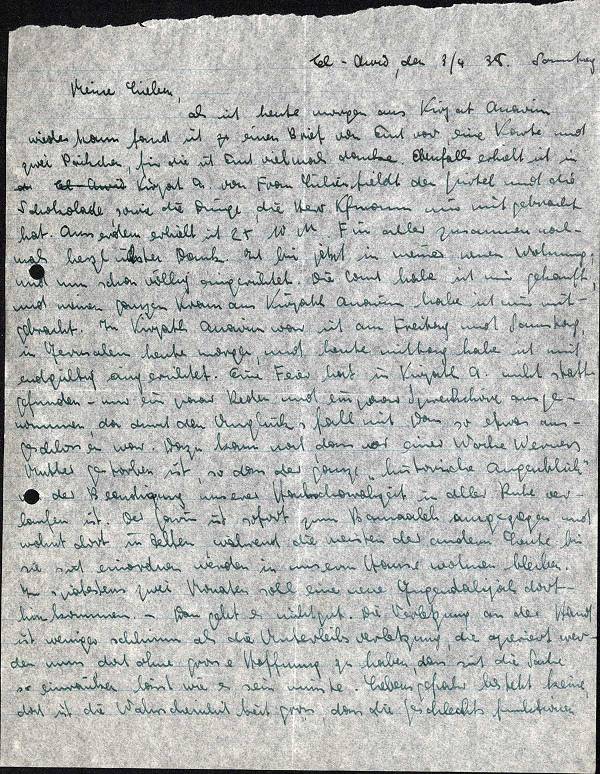 Tel-Awiv, den 3/4 38. Sonntag
Meine Lieben,
als ich heute morgen aus Kirjat Anavim
wieder kam fand ich je einen Brief von Euch vor eine Karte und
zwei Päckchen, für die ich Euch vielmals danke. Ebenfalls erhielt ich in
Tel-Awiv Kirjat A. von Frau Lilienfeldt den und die
Schokolade sowie die Dinge, die Herr mir mitgebracht
hat. Ausserdem erhielt ich 25 M. Für alles zusammen noch-
mals herzlichsten Dank. Ich bin jetzt in meiner neuen Wohnung,
und nun schon völlig eingerichtet. Die habe ich mir gekauft,
und meinen ganzen Kram aus Kirjath Anavim habe ich mit-
gebracht. In Kirjath Anavim war ich am Freitag und Sonnabend,
in Jerusalem heute morgen, und heute mittag habe ich mich
endgültig eingerichtet. Eine Feier hat in Kirjath A. nicht statt-
gefunden - nur ein paar Reden und ein paar Sprechchöre ausge-
nommen, da durch den Unglücksfall mit Dan so etwas aus-
geschlossen war. Dazu kam noch dass vor einer Woche Werners
Mutter gestorben ist, so dass der ganze "historische Augenblick"
der Beendigung unserer in aller Ruhe ver-
laufen ist. Der ist sofort zum angezogen und
wohnt dort in Zelten während die meisten der anderen Leute bis
sie sich einordnen werden in unserm Hause wohnen bleiben.
In spätestens zwei Monaten soll eine neue Jugendalijah dort-
hin kommen. - Dan geht es nicht gut. Die Verletzung an der Hand
ist weniger schlimm als die Unterleibsverletzung, die operiert wer-
den muss doch ohne grosse Hoffnung zu haben, dass sich die Sache
so einrenken lässt wie es sein müsste. Lebensgefahr besteht keine,
doch ist die Wahrscheinlichkeit gross, dass die Geschlechtsfunktionen